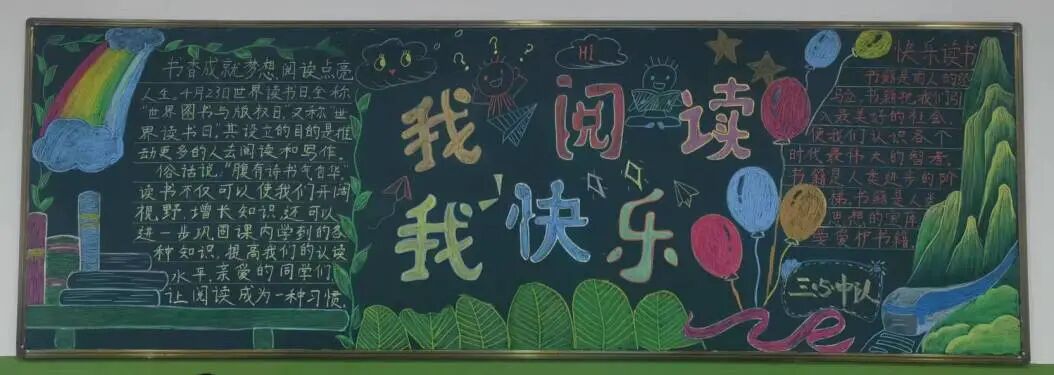 书香成就梦想,阅读点亮
人生。4月23日世界读书日全称
"世界图书与版权日",又称"世
界读书日",其设立的目的是推
动更多的人去阅读和写作。
俗话说,"腹有诗书气自华"
读书不仅可以使我们开阔
视野,增长知识,还可以
进一步巩固课内学到的各
种知识,提高我们的认读
水平,亲爱的同学们
让阅读成为一种习惯.
HI
我阅读
我快乐
快乐读书
书籍是前人的经
验,书籍把我们引
入最美好的社会,
使我们认识各个
时代最伟大的智者,
书籍是人类进步的阶
梯,书籍是人类
思想的宝库
要爱护书籍
三.5.中队